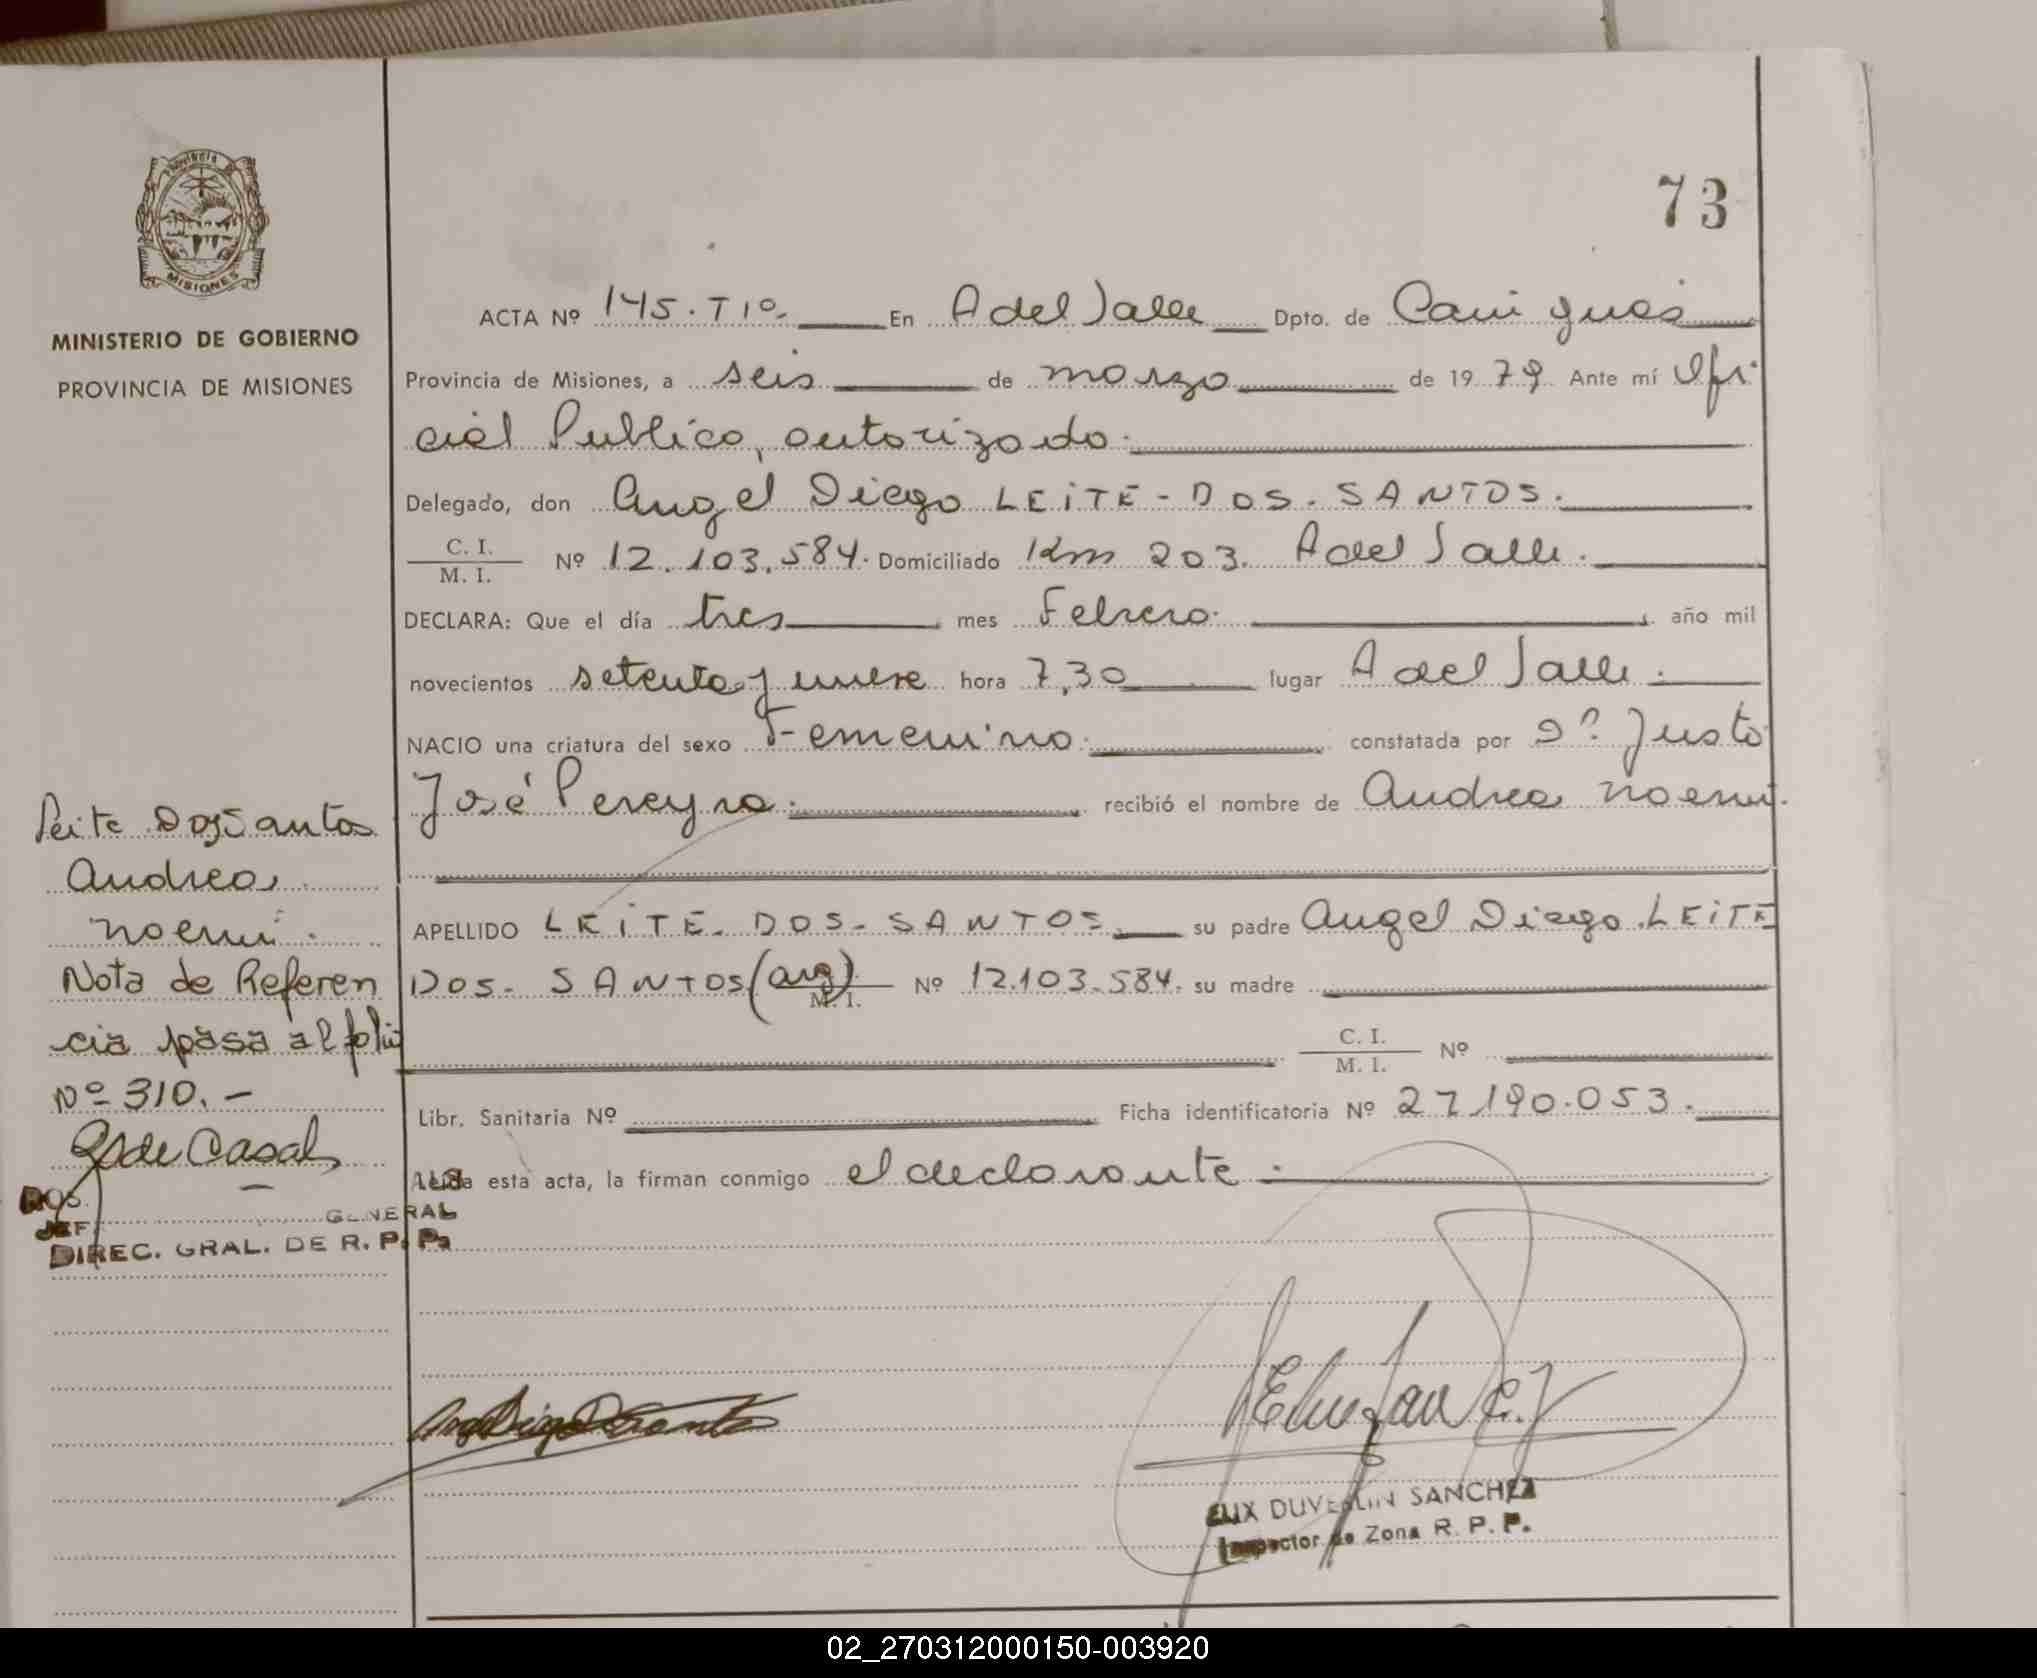 73
MINISTERIO DE GOBIERNO
PROVINCIA DE MISIONES
ACTA Nº 145. T 1º. En A del Valle Dpto. de Cainguás
Provincia de Misiones, a seis de marzo de 1979. Ante mí Ofi
cial Publico, autorizado.
Delegado, don Angel Diego LEITE - DOS - SANTOS.
C. I. / M. I. Nº 12.103.584. Domiciliado Km 203. A del Valle.
DECLARA: Que el día tres mes Febrero. año mil
novecientos setenta y nueve hora 7,30 lugar A del Valle.
NACIO una criatura del sexo Femenino. constatada por Dº. Justo
José Pereyra. recibió el nombre de Andrea Noemi.
APELLIDO LEITE - DOS - SANTOS. su padre Angel Diego LEITE
DOS - SANTOS (arg) M. I. Nº 12.103.584. su madre
C. I. / M. I. Nº
Libr. Sanitaria Nº Ficha identificatoria Nº 27.190.053.
Leída esta acta, la firman conmigo el declarante.
Leite Dos Santos
Andrea
Noemi.
Nota de Referen
cia pasa al folio
Nº 310. -
GENERAL
DIREC. GRAL. DE R. P. P.
DUVERLIN SANCHEZ
Inspector de Zona R. P. P.
02_270312000150-003920